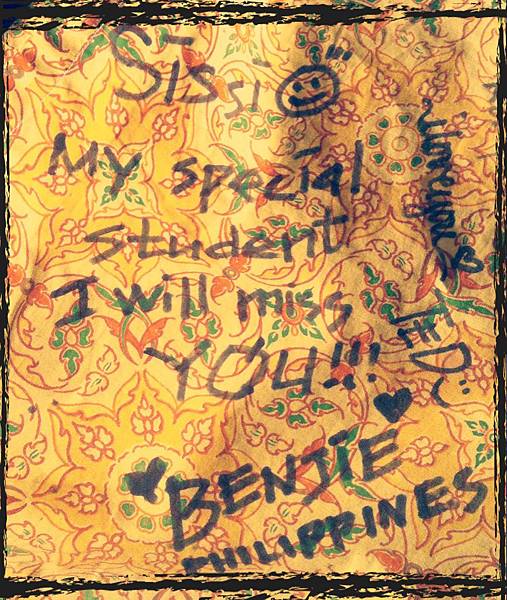 Sissi
My special
student
I will miss
YOU!!!
BENJIE
PHILIPPINES